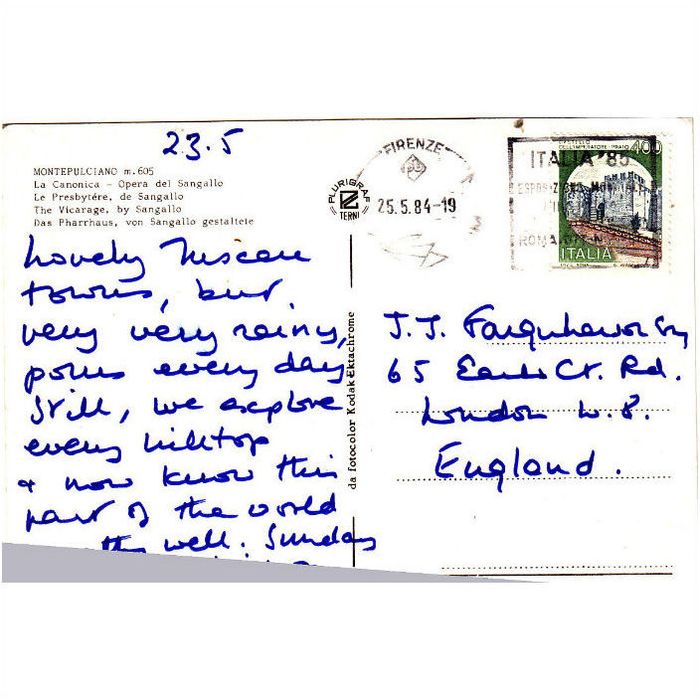 23.5
MONTEPULCIANO m.605
La Canonica - Opera del Sangallo
Le Presbytére, de Sangallo
The Vicarage, by Sangallo
Das Pharrhaus, von Sangallo gestaltete
Lovely Tuscan
towns, but
very very rainy,
pours every day
Still, we explore
every hilltop
& now know this
part of the world
well. Sunday
PLURIGRAF
TERNI
da fotocolor Kodak Ektachrome
FIRENZE
25.5.84-19
ITALIA '85
ROMA
CASTELLO
DELL'IMPERATORE · PRATO 400
ITALIA
J. J. Farquharson Esq
65 Earls Ct. Rd.
London W.8.
England.